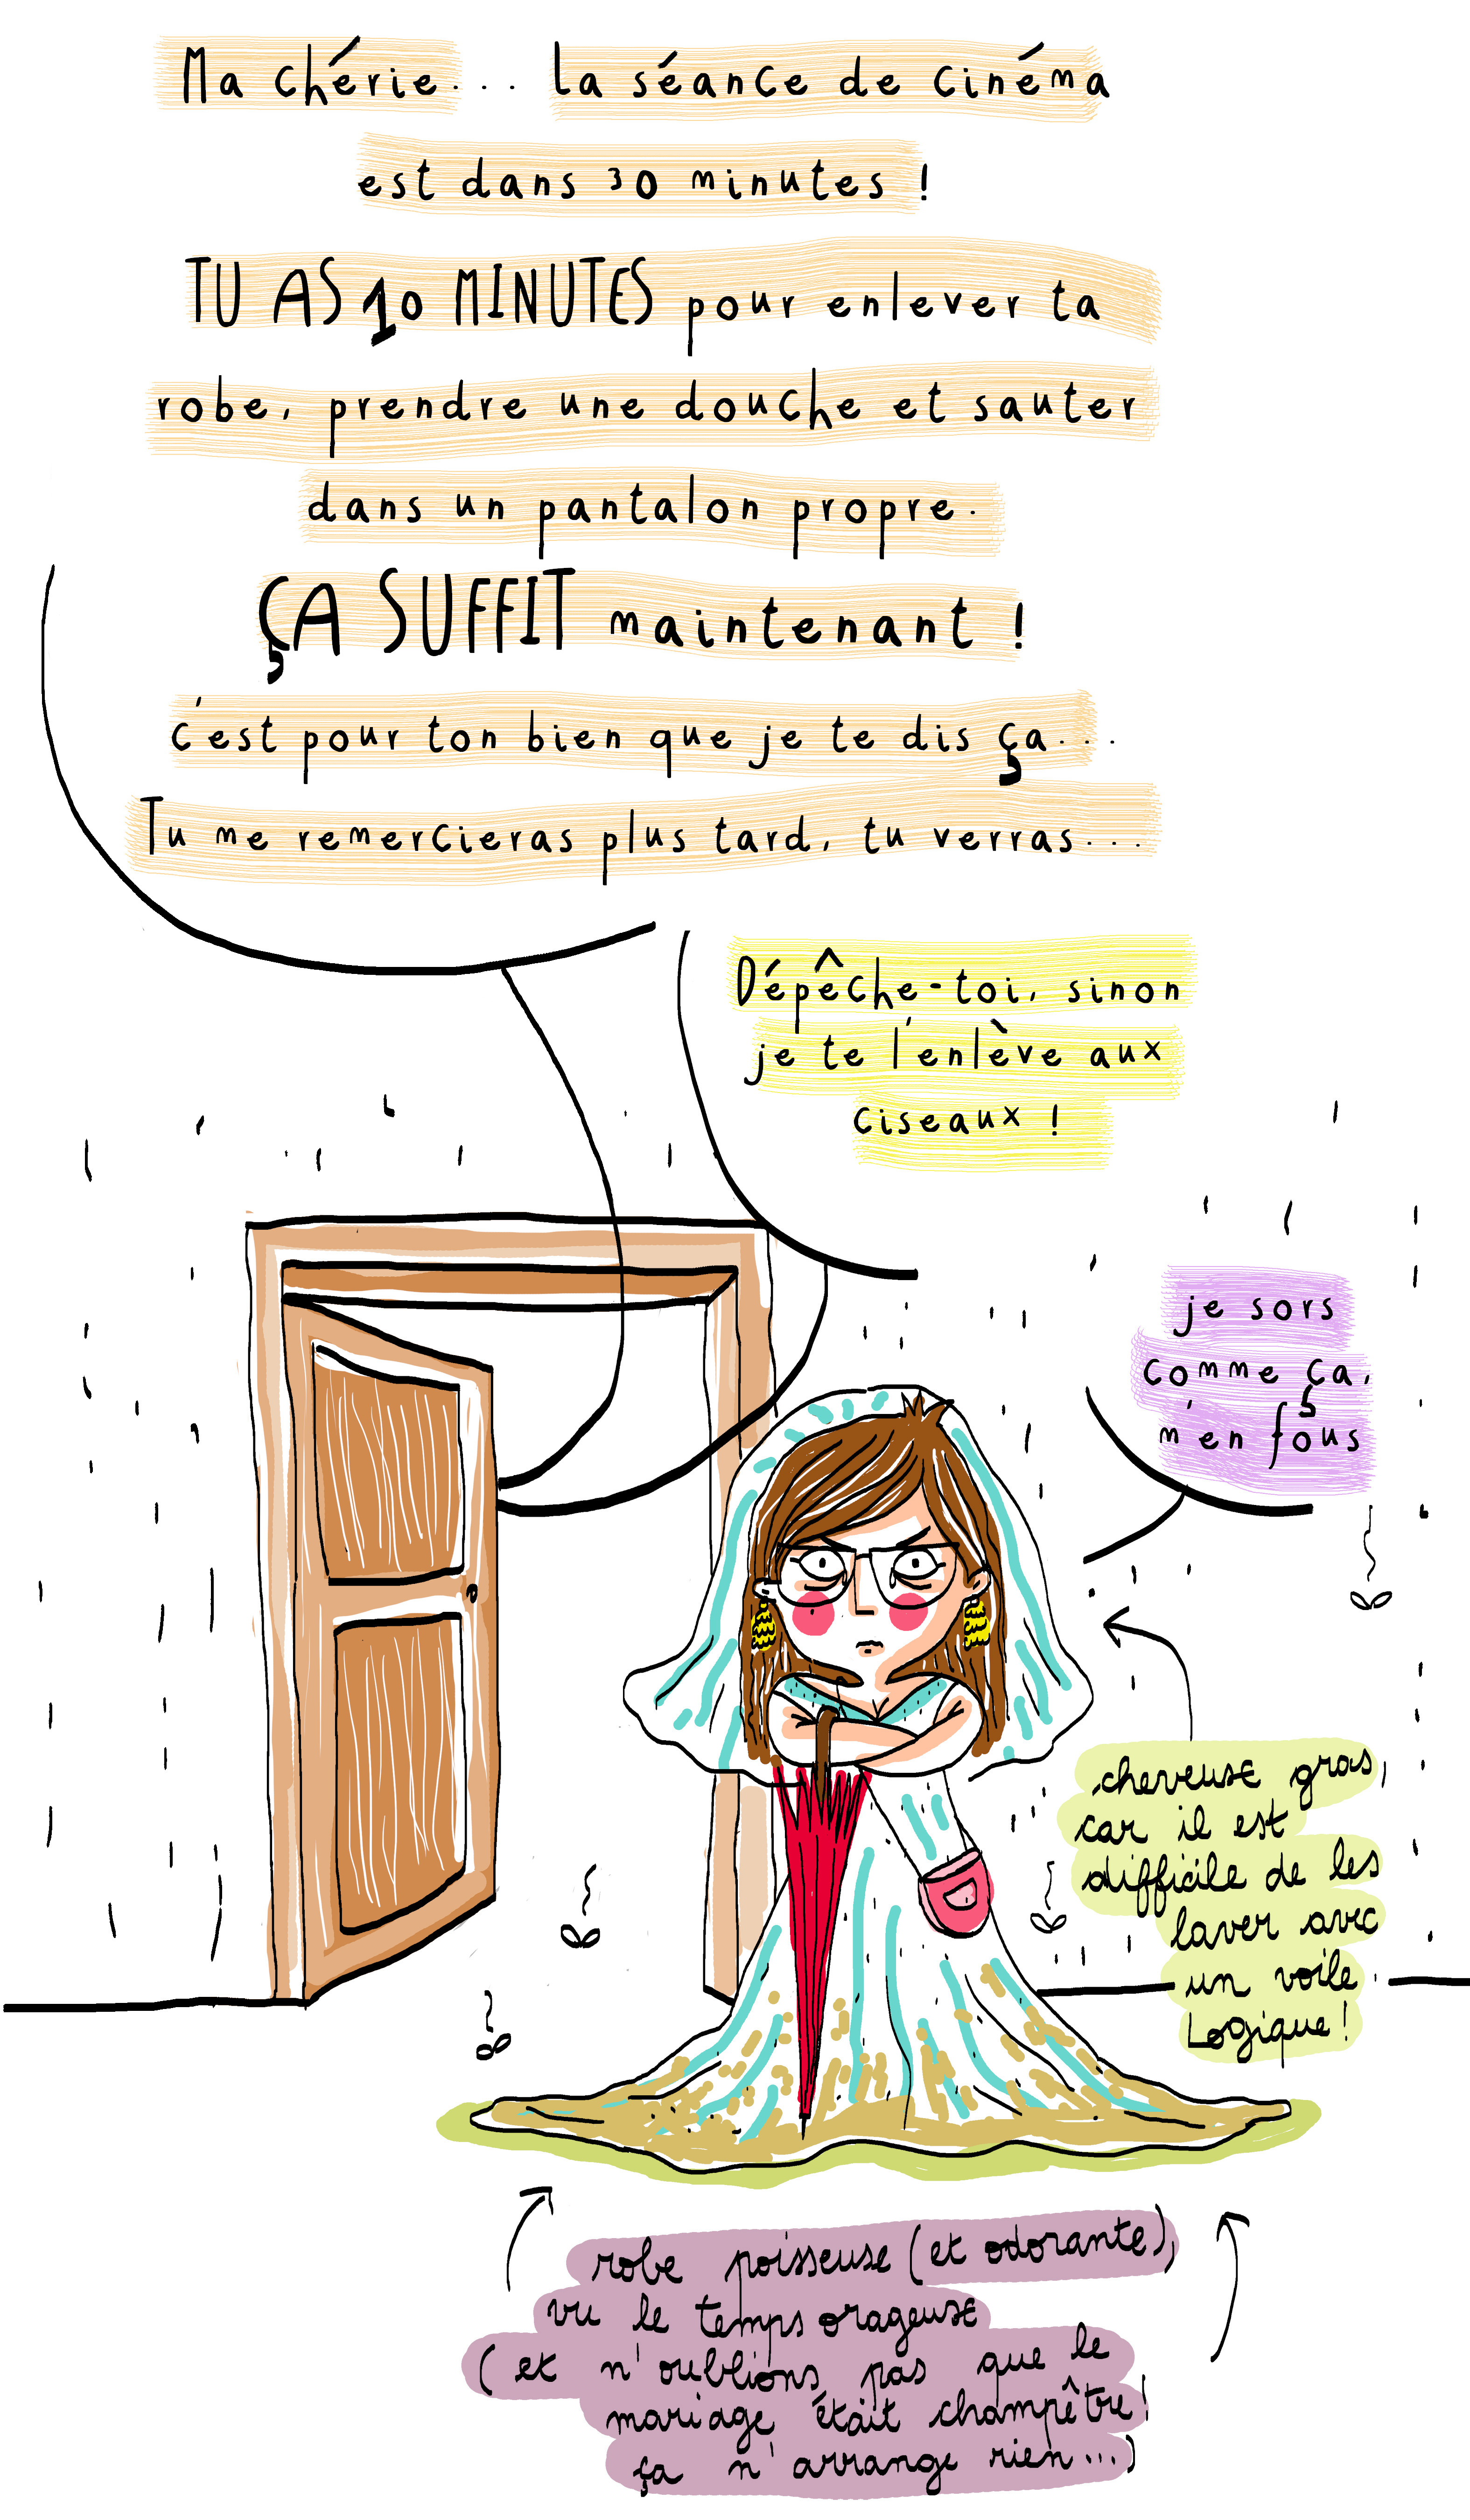 Ma chérie... La séance de cinéma
est dans 30 minutes !
TU AS 10 MINUTES pour enlever ta
robe, prendre une douche et sauter
dans un pantalon propre.
ÇA SUFFIT maintenant !
c'est pour ton bien que je te dis ça...
Tu me remercieras plus tard, tu verras...
Dépêche-toi, sinon
je te l'enlève aux
ciseaux !
je sors
comme ça,
m'en fous
cheveux gras,
car il est
difficile de les
laver avec
un voile.
Logique !
robe poisseuse (et odorante),
vu le temps orageux
(et n'oublions pas que le
mariage était champêtre !
ça n'arrange rien...)